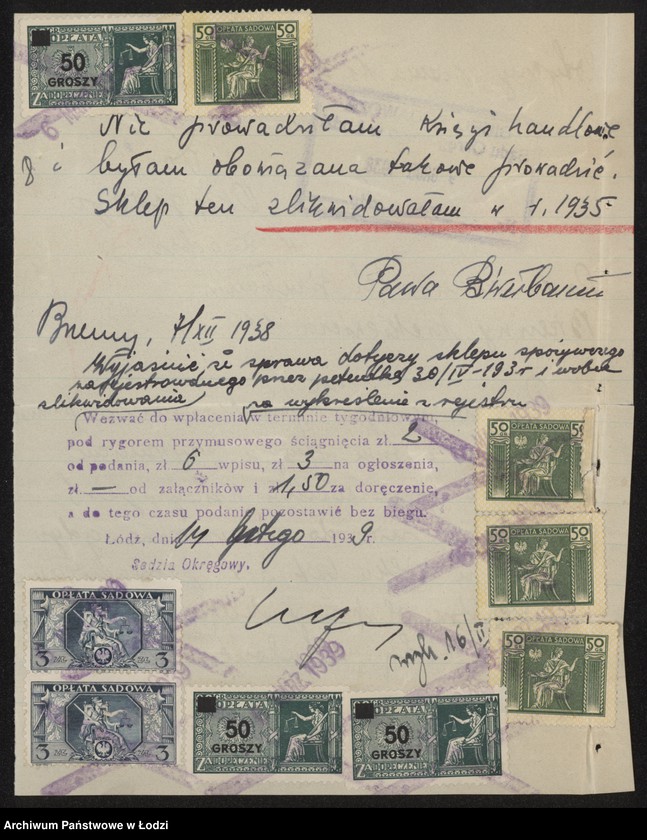 OPŁATA
50
GROSZY
ZA DORĘCZENIE
50 OPŁATA SĄDOWA 50
Nie prowadziłam Księgi handlowe
i byłam obowiązana takowe prowadzić.
Sklep ten zlikwidowałam w r. 1935
Brzeziny, 7/XII 1938
Wyjaśnić że sprawa dotyczy sklepu spożywczego
zarejestrowanego przez petentkę 30/IV-193 r i wobec
zlikwidowania
za wykreślenie z rejestru
Wezwać do wpłacenia w terminie tygodniowym,
pod rygorem przymusowego ściągnięcia zł. 2
od podania, zł 6 wpisu, zł 3 na ogłoszenia,
zł. — od załączników i zł 1,50 za doręczenie,
a do tego czasu podanie pozostawić bez biegu.
Łódź, dnia 14 lutego 1939 r.
Sędzia Okręgowy.
50 OPŁATA SĄDOWA 50
50 OPŁATA SĄDOWA 50
50 OPŁATA SĄDOWA 50
OPŁATA SĄDOWA
3 3
OPŁATA SĄDOWA
3 3
1939
OPŁATA
50
GROSZY
ZA DORĘCZENIE
OPŁATA
50
GROSZY
ZA DORĘCZENIE
Archiwum Państwowe w Łodzi